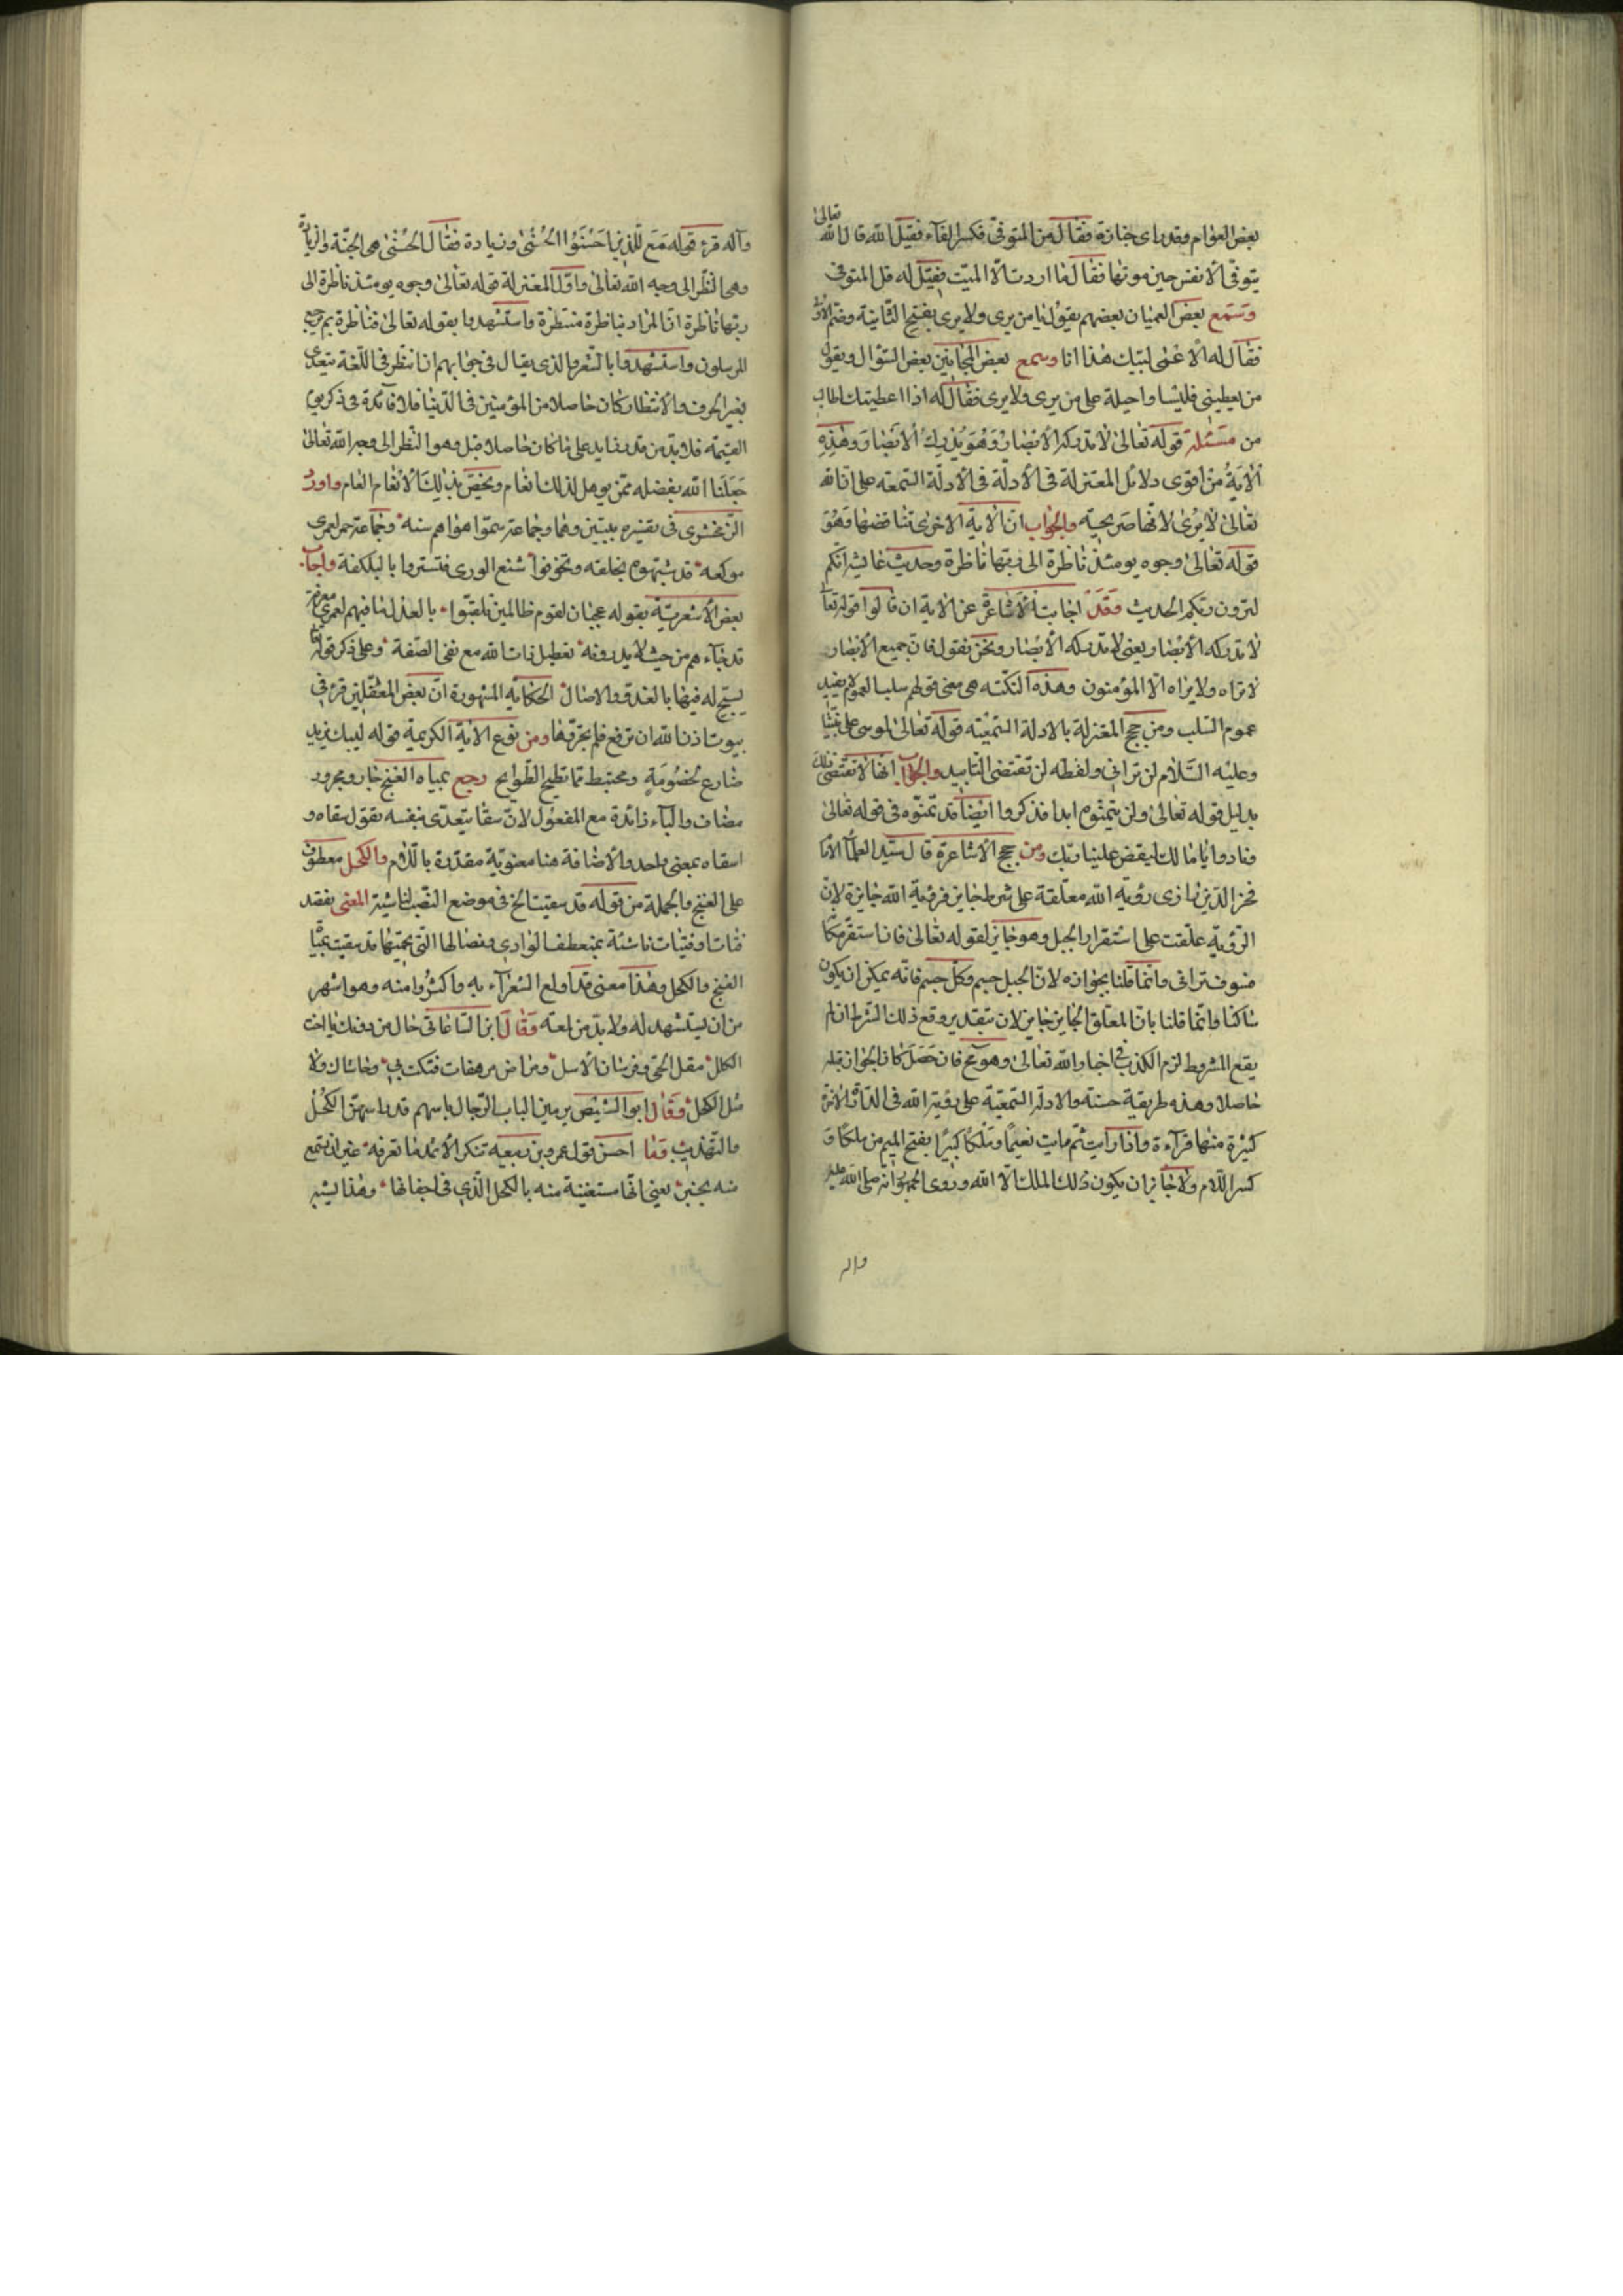 بعض العوام وقد راى جنازة فقال من المتوفى فكسر الفاء فقيل الله قال الله تعالى
يتوفى الانفس حين موتها فقال ما اردت الا الميت فقيل له قل المتوفى
وسمع بعض العميان بعضهم يقول يا من يرى ولا يرى بفتح الثانية وضم الاولى
فقال له الاعمى لبيك هذا انا وسمع بعض المجانين بعض السؤال ويقول
من يعطينى فليسا واحيله على من يرى ولا يرى فقال له اذا اعطيتك اطالب
من مسئلة قوله تعالى لا تدركه الابصار وهو يدرك الابصار وهذه
الآية من اقوى دلائل المعتزلة فى الادلة فى الادلة السمعة على ان الله
تعالى لا يرى لانها صريحة والجواب ان الاية الاخرى تناقضها وهو
قوله تعالى وجوه يومئذ ناظرة الى ربها ناظرة وحديث عايشة انكم
لترون ربكم الحديث وقد اجابت الاشاعرة عن الاية ان قالوا قوله تعالى
لا تدركه الابصار يعنى لا تدركه الابصار ونحن نقول فان جميع الابصار
لا تراه ولا يراه الا المؤمنون وهذه النكته هى معنى قولهم سلب العموم لا يفيد
عموم السلب ومن حجج المعتزلة بالادلة السمعية قوله تعالى لموسى على نبينا
وعليه السلام لن ترانى ولفظه لن تقتضى التابيد والجواب انها لا تقتضى ذلك
بدليل قوله تعالى ولن يتمنوه ابدا فذكروا ايضا قد تمنوه فى قوله تعالى
ونادوا يا مالك ليقض علينا ربك ومن حجج الاشاعرة قال سيد العلماء الامام
فخر الدين الرازى رؤية الله معلقة على شرط جايز فرؤية الله جايزة لان
الرؤية علقت على استقرار الجبل وهو جايز لقوله تعالى فان استقر مكانه
فسوف ترانى وانما قلنا بجوازه لان الجبل جسم وكل جسم فانه يمكن ان يكون
ساكنا وانما قلنا بان المعلق الجايز جايز لان بتقدير وقوع ذلك الشرط ان لم
يقع المشروط لزم الكذب فى اخبار الله تعالى وهو مح فان حصل كان الجواز قبله
حاصلا وهذه طريقة حسنة والادلة السمعية على رؤية الله فى الدار الاخرة
كثيرة منها قرآءة واذا رايت ثم رايت نعيما وملكا كبيرا بفتح الميم من ملكا و
كسر اللام ولا جائز ان يكون ذلك الملك الا الله وروى الجمهور انه صلى الله عليه
واله
وآله قرء قوله مع للذين احسنوا الحسنى وزيادة فقال الحسنى هى الجنة والزيادة
وهى النظر الى وجه الله تعالى واول المعتزلة قوله تعالى وجوه يومئذ ناظرة الى
ربها ناظرة ان المراد بناظرة منتظرة واستشهدوا بقوله تعالى فناظرة بم يرجع
المرسلون واستشهدوا بالشعر والذى يقال فى جوابهم ان انتظر فى اللغة يتعدى
بغير الحرف والانتظار كان حاصلا من المؤمنين فى الدنيا فلا فائدة فى ذكر يوم
القيمة فلا بد من قدر زايد على ما كان حاصلا قبل وهو النظر الى وجه الله تعالى
جعلنا الله بفضله ممن يوهل لذلك انعام ويخص بذلك الانعام العام واورد
الزمخشرى فى تفسيره بيتين وهما وجماعة سموا هواهم سنة وجماعة حمر لعمرى
موكفه قد شبهوه بخلقه وتخوفوا شنع الورى فتستروا بالبلكفة واجاب
بعض الاشعرية بقوله عجبا لقوم ظالمين تلقبوا بالعدل ما فيهم لعمرى معرفة
قد جاءهم من حيث لا يدرونه تعطيل ذات الله مع نفى الصفة وعلى ذكر قوله تعالى
يسبح له فيها بالغدو والاصال الحكاية المشهورة ان بعض المغفلين قرء فى
بيوت اذن الله ان ترفع فلم يحرفها ومن نوع الاية الكريمة قوله ليبك يزيد
ضارع لخصومة ومختبط مما تطيح الطوايح رجع بمياه الغنج جار ومجرور
مضاف والباء زائدة مع المفعول لان سقا يتعدى بنفسه تقول سقاه و
اسقاه بمعنى واحد والاضافة هنا معنوية مقدرة باللام والكحل معطوف
على الغنج والجملة من قوله قد سقيت الخ فى موضع النصب لناشية المعنى نقصد
فتات او فتيات ناشئة بمنعطف الوادى ونصالها التى بجنبها قد سقيت بمياه
الغنج والكحل وهذا معنى قد اولع الشعراء به واكثروا منه وهو اشهر
من ان يستشهد له ولا بد من لمعة فقال ابن الساعاتى حال من دونك يا اخت
الكلل مقل الحى وفرسان الاسل ومراض مرهفات فتكت بى وحاشاك ولا
مثل الكحل وقال ابو الشيص يرمين الباب الرجال باسهم قد راسهن الكحل
والتهذيب وما احسن قول عمر بن ربيعه تنكر الاثمد ما تعرفه غير ان تسمع
منه بخبر يعنى انها مستغنية منه بالكحل الذى فى اجفانها وهذا يشبه